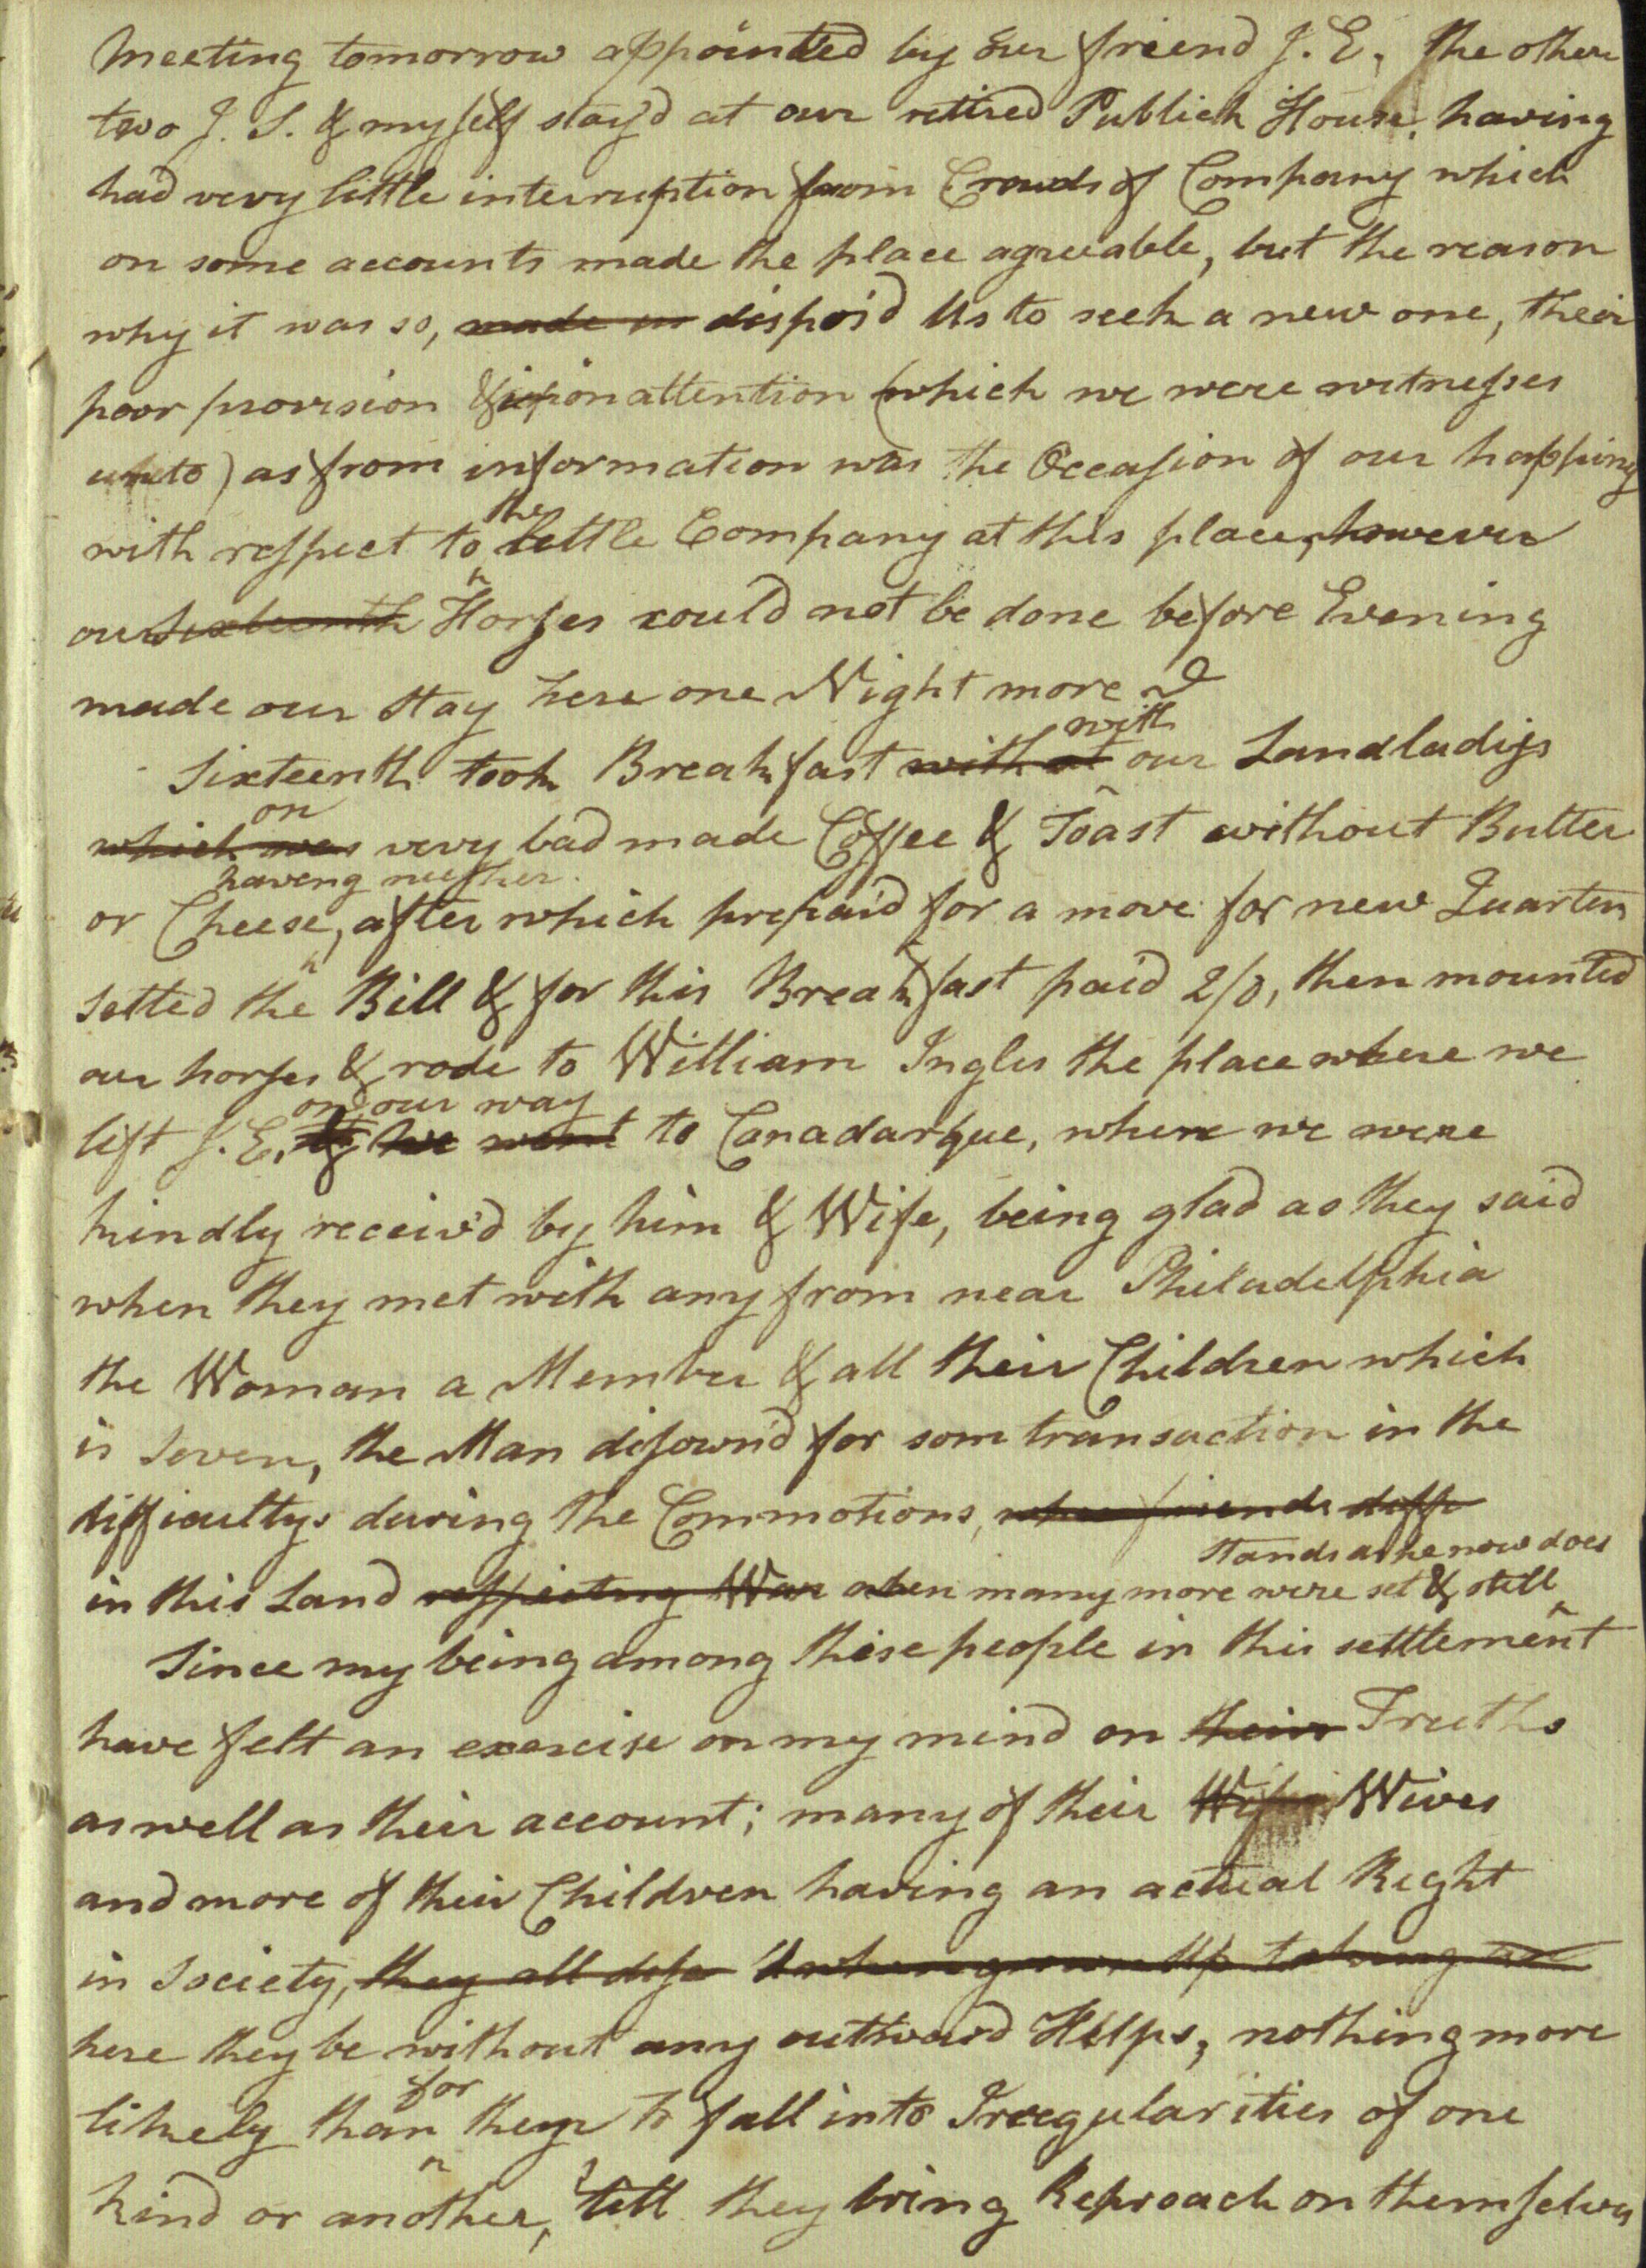 Meeting tomorrow appointed by our friend J. E. the other
two J. S. & myself stay'd at our retired Publick House, having
had very little interruption from Crouds of Company which
on some accounts made the place agreeable, but the reason
why it was so, made us dispos'd Us to seek a new one, their
poor provision & attention (which we were witnesses
unto) as from information was the Occasion of our happing
with respect to the little Company at this place, however
our Sixteenth Horses could not be done before Evening
made our stay here one Night more
Sixteenth took Breakfast with at with our Landladys
which was on very bad made Coffee & Toast without Butter
or Cheese, having neither. after which prepaid for a move for new Quarters
setted the Bill & for this Breakfast paid 2/0, then mounted
our horses & rode to William Ingles the place where we
left J. E. & we went on our way to Canadarque, where we were
kindly receiv'd by him & Wife, being glad as they said
when they met with any from near Philadelphia
the Woman a Member & all their Children which
is Seven, the Man disown'd for som transaction in the
difficultys during the Commotions, when friends diffe
in this Land respecting War when many more were set & still stands as he now does
Since my being among these people in this settlement
have felt an exercise on my mind on their Truths
as well as their account; many of their Wifes Wives
and more of their Children having an actual Right
in Society, they all when grown Up
here they be without any outward Helps, nothing more
likely than for them to fall into Irregularities of one
kind or another, till they bring Reproach on themselves